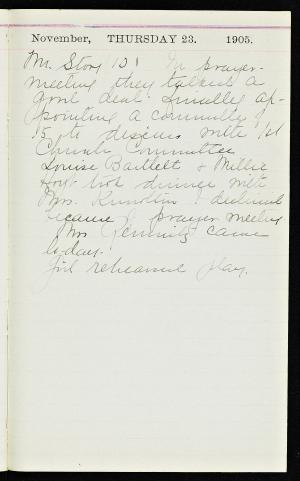 November, THURSDAY 23. 1905.
Mr. Story 10! In prayer-
meeting they talked a
good deal finally ap-
pointing a committee of
5 to discuss with 1st
Church Committee
Louise Bartlett & Millie
Hoyt took dinner with
Mrs. I declined
because of prayer meeting
Mrs came
to-day.
Girl rehearsal play.